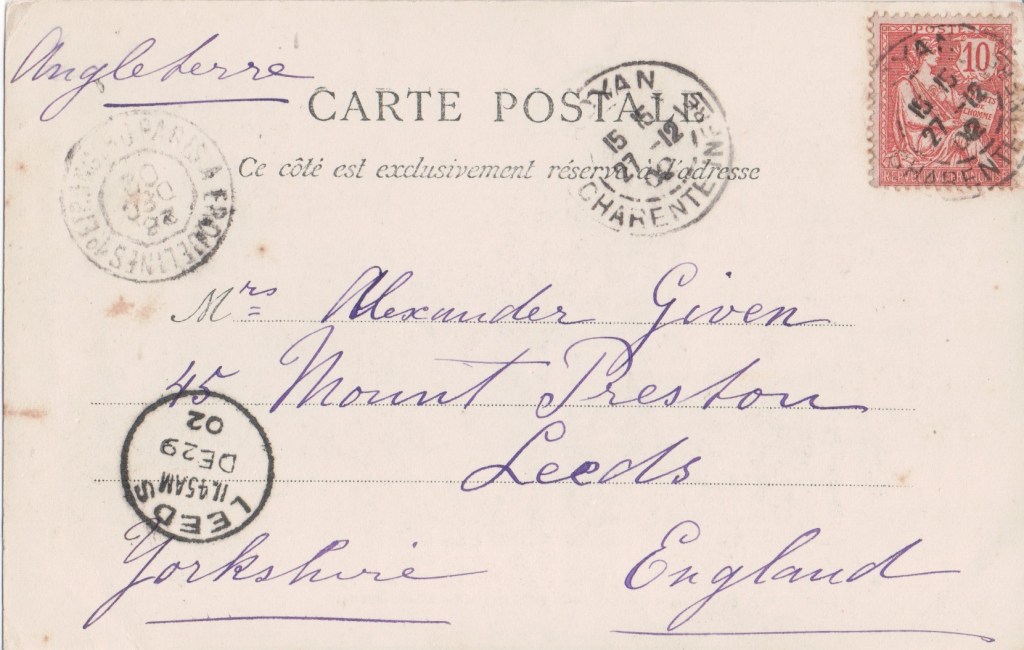 Angleterre
CARTE POSTALE
Ce côté est exclusivement réservé à l'adresse
POSTES
10
YAN
15 15
27 -12
02
CHARENTE INFRE
PARIS A ERQUELINES
Mrs Alexander Given
45 Mount Preston
Leeds
Yorkshire England
LEEDS
11.45AM
DE29
02